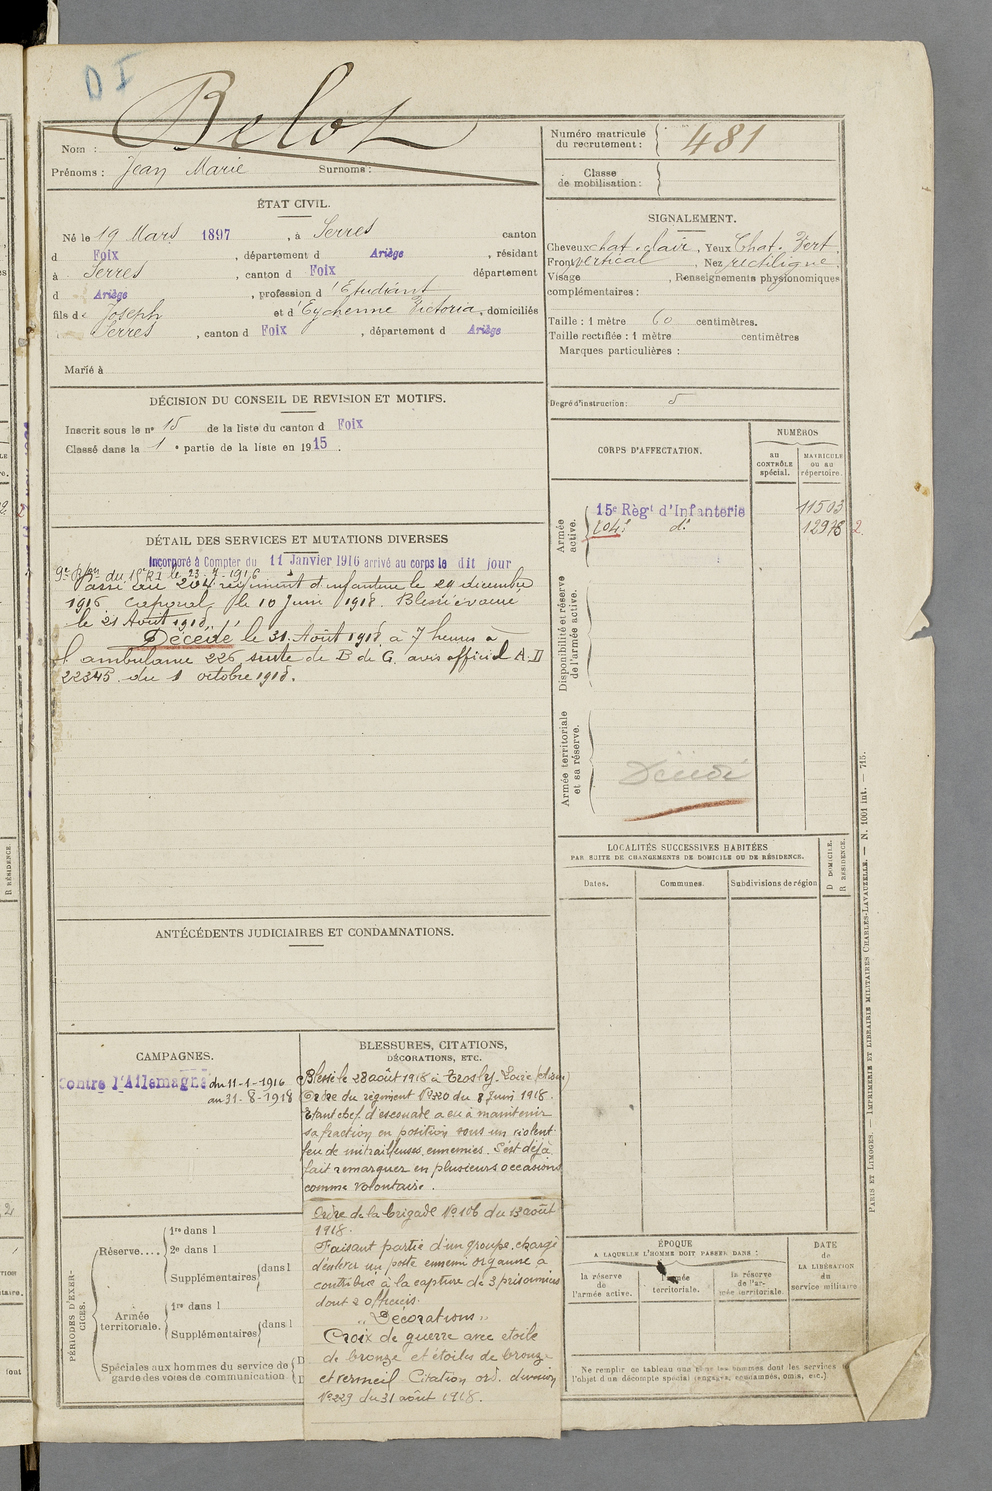 D I
Belot
Nom :
Prénoms : Jean Marie Surnoms :
Numéro matricule du recrutement : 481
Classe de mobilisation :
ÉTAT CIVIL.
Né le 19 Mars 1897, à Serres canton
d Foix, département d Ariège, résidant
à Serres, canton d Foix département
d Ariège, profession d'Etudiant
fils de Joseph et d'Eychenne Victoria, domiciliés
Serres, canton d Foix, département d Ariège
Marié à
SIGNALEMENT.
Cheveux chat. clair, Yeux Chat. Vert
Front vertical, Nez rectiligne.
Visage, Renseignements physionomiques
complémentaires :
Taille : 1 mètre 60 centimètres.
Taille rectifiée : 1 mètre centimètres
Marques particulières :
Degré d'instruction : 5
DÉCISION DU CONSEIL DE REVISION ET MOTIFS.
Inscrit sous le n° 15 de la liste du canton d Foix
Classé dans la 1e partie de la liste en 1915.
CORPS D'AFFECTATION.
NUMÉROS
au CONTRÔLE spécial.
MATRICULE ou au répertoire.
Armée active.
15e Règt d'Infanterie 11503
204e d° 12976 2.
Disponibilité et réserve de l'armée active.
Armée territoriale et sa réserve.
Décédé
DÉTAIL DES SERVICES ET MUTATIONS DIVERSES
Incorporé à Compter du 11 Janvier 1916 arrivé au corps le dit jour
du 15e RI le 23-7-1916
Passé au 204e régiment d'infanterie le 20 décembre
1916. Caporal le 10 Juin 1918. Blessé évacué
le 21 Août 1918.
Décédé le 31 Août 1918 à 7 heures à
l'ambulance 226 suite de B de G. avis officiel A.D
22345. du 1 octobre 1918.
ANTÉCÉDENTS JUDICIAIRES ET CONDAMNATIONS.
LOCALITÉS SUCCESSIVES HABITÉES
PAR SUITE DE CHANGEMENTS DE DOMICILE OU DE RÉSIDENCE.
Dates.
Communes.
Subdivisions de région
D DOMICILE.
R RÉSIDENCE.
CAMPAGNES.
Contre l'Allemagne du 11-1-1916
au 31-8-1918
BLESSURES, CITATIONS,
DÉCORATIONS, ETC.
Blessé le 28 août 1918 à Trosly-Loire (Aisne)
Ordre du régiment N°220 du 8 Juin 1918.
Etant chef d'escouade a eu à maintenir
sa fraction en position sous un violent
feu de mitrailleuses ennemies. S'est déjà
fait remarquer en plusieurs occasions
comme volontaire.
Ordre de la brigade N°106 du 13 août
1918.
Faisant partie d'un groupe chargé
d'enlever un poste ennemi organisé a
contribué à la capture de 3 prisonniers
dont 2 officiers.
"Décorations"
Croix de guerre avec étoile
de bronze et étoiles de bronze
et vermeil. Citation ord. division
N°229 du 31 août 1918.
PÉRIODES D'EXERCICES.
Réserve....
1re dans l
2e dans l
Supplémentaires dans l
Armée territoriale.
1re dans l
Supplémentaires dans l
Spéciales aux hommes du service de
garde des voies de communication
ÉPOQUE
A LAQUELLE L'HOMME DOIT PASSER DANS :
la réserve de l'armée active.
l'armée territoriale.
la réserve de l'armée territoriale.
DATE de LA LIBÉRATION du service militaire
Ne remplir ce tableau que pour les hommes dont les services
l'objet d'un décompte spécial (engagés, condamnés, omis, etc.)
PARIS ET LIMOGES. — IMPRIMERIE ET LIBRAIRIE MILITAIRES CHARLES-LAVAUZELLE. — N. 1001 int. — 715.